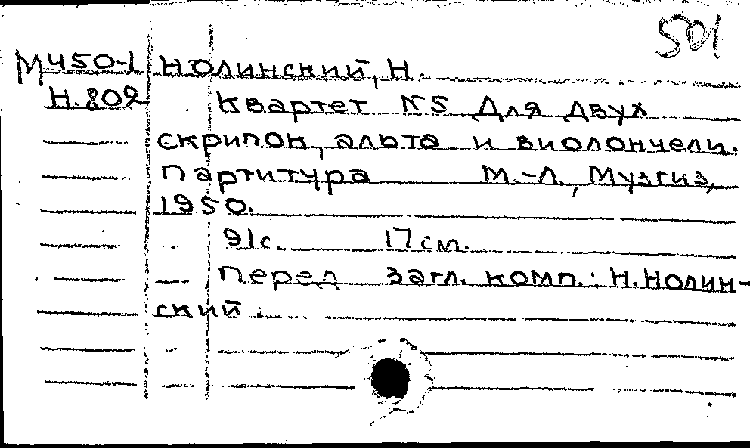 501
М450-1 Нолинский, Н.
Н.802 Квартет №5 Для двух
скрипок, альта и виолончели.
Партитура М.-Л., Музгиз,
1950.
91с. 17см.
Перед загл. комп.: Н.Нолин-
ский.